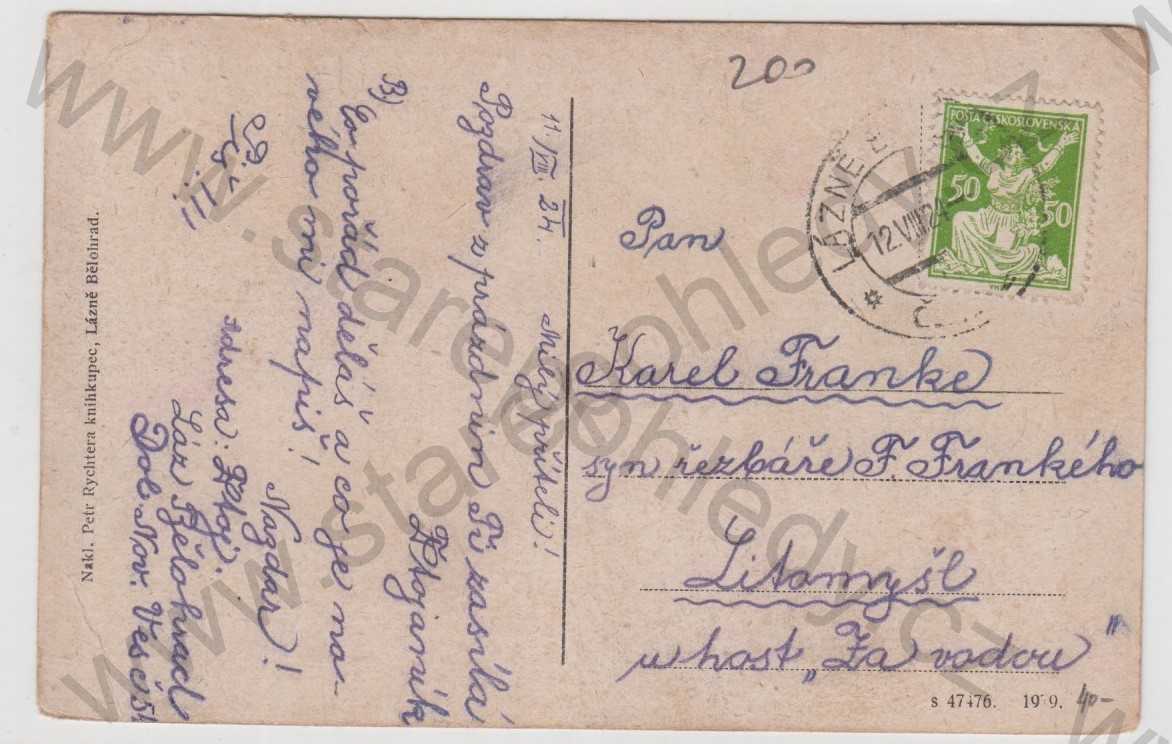 200
11./VIII 24. Milý příteli!
Pozdrav z prázdnin Ti zasílá
Ptojamík
B)
Co pořád děláš a co je no-
vého mi napiš!
Nazdar!
adresa: Ptoj.
Láz Bělohrad
Dol. Nov. Ves č. 51
Nakl. Petr Rychtera knihkupec, Lázně Bělohrad.
POŠTA ČESKOSLOVENSKÁ
50 50
LÁZNĚ B
12.VIII.24
Pan
Karel Franke
syn řezbáře F. Frankého
Litomyšl
u host „Za vodou"
s 47476. 19 9.
40-
www.starepohledy.cz